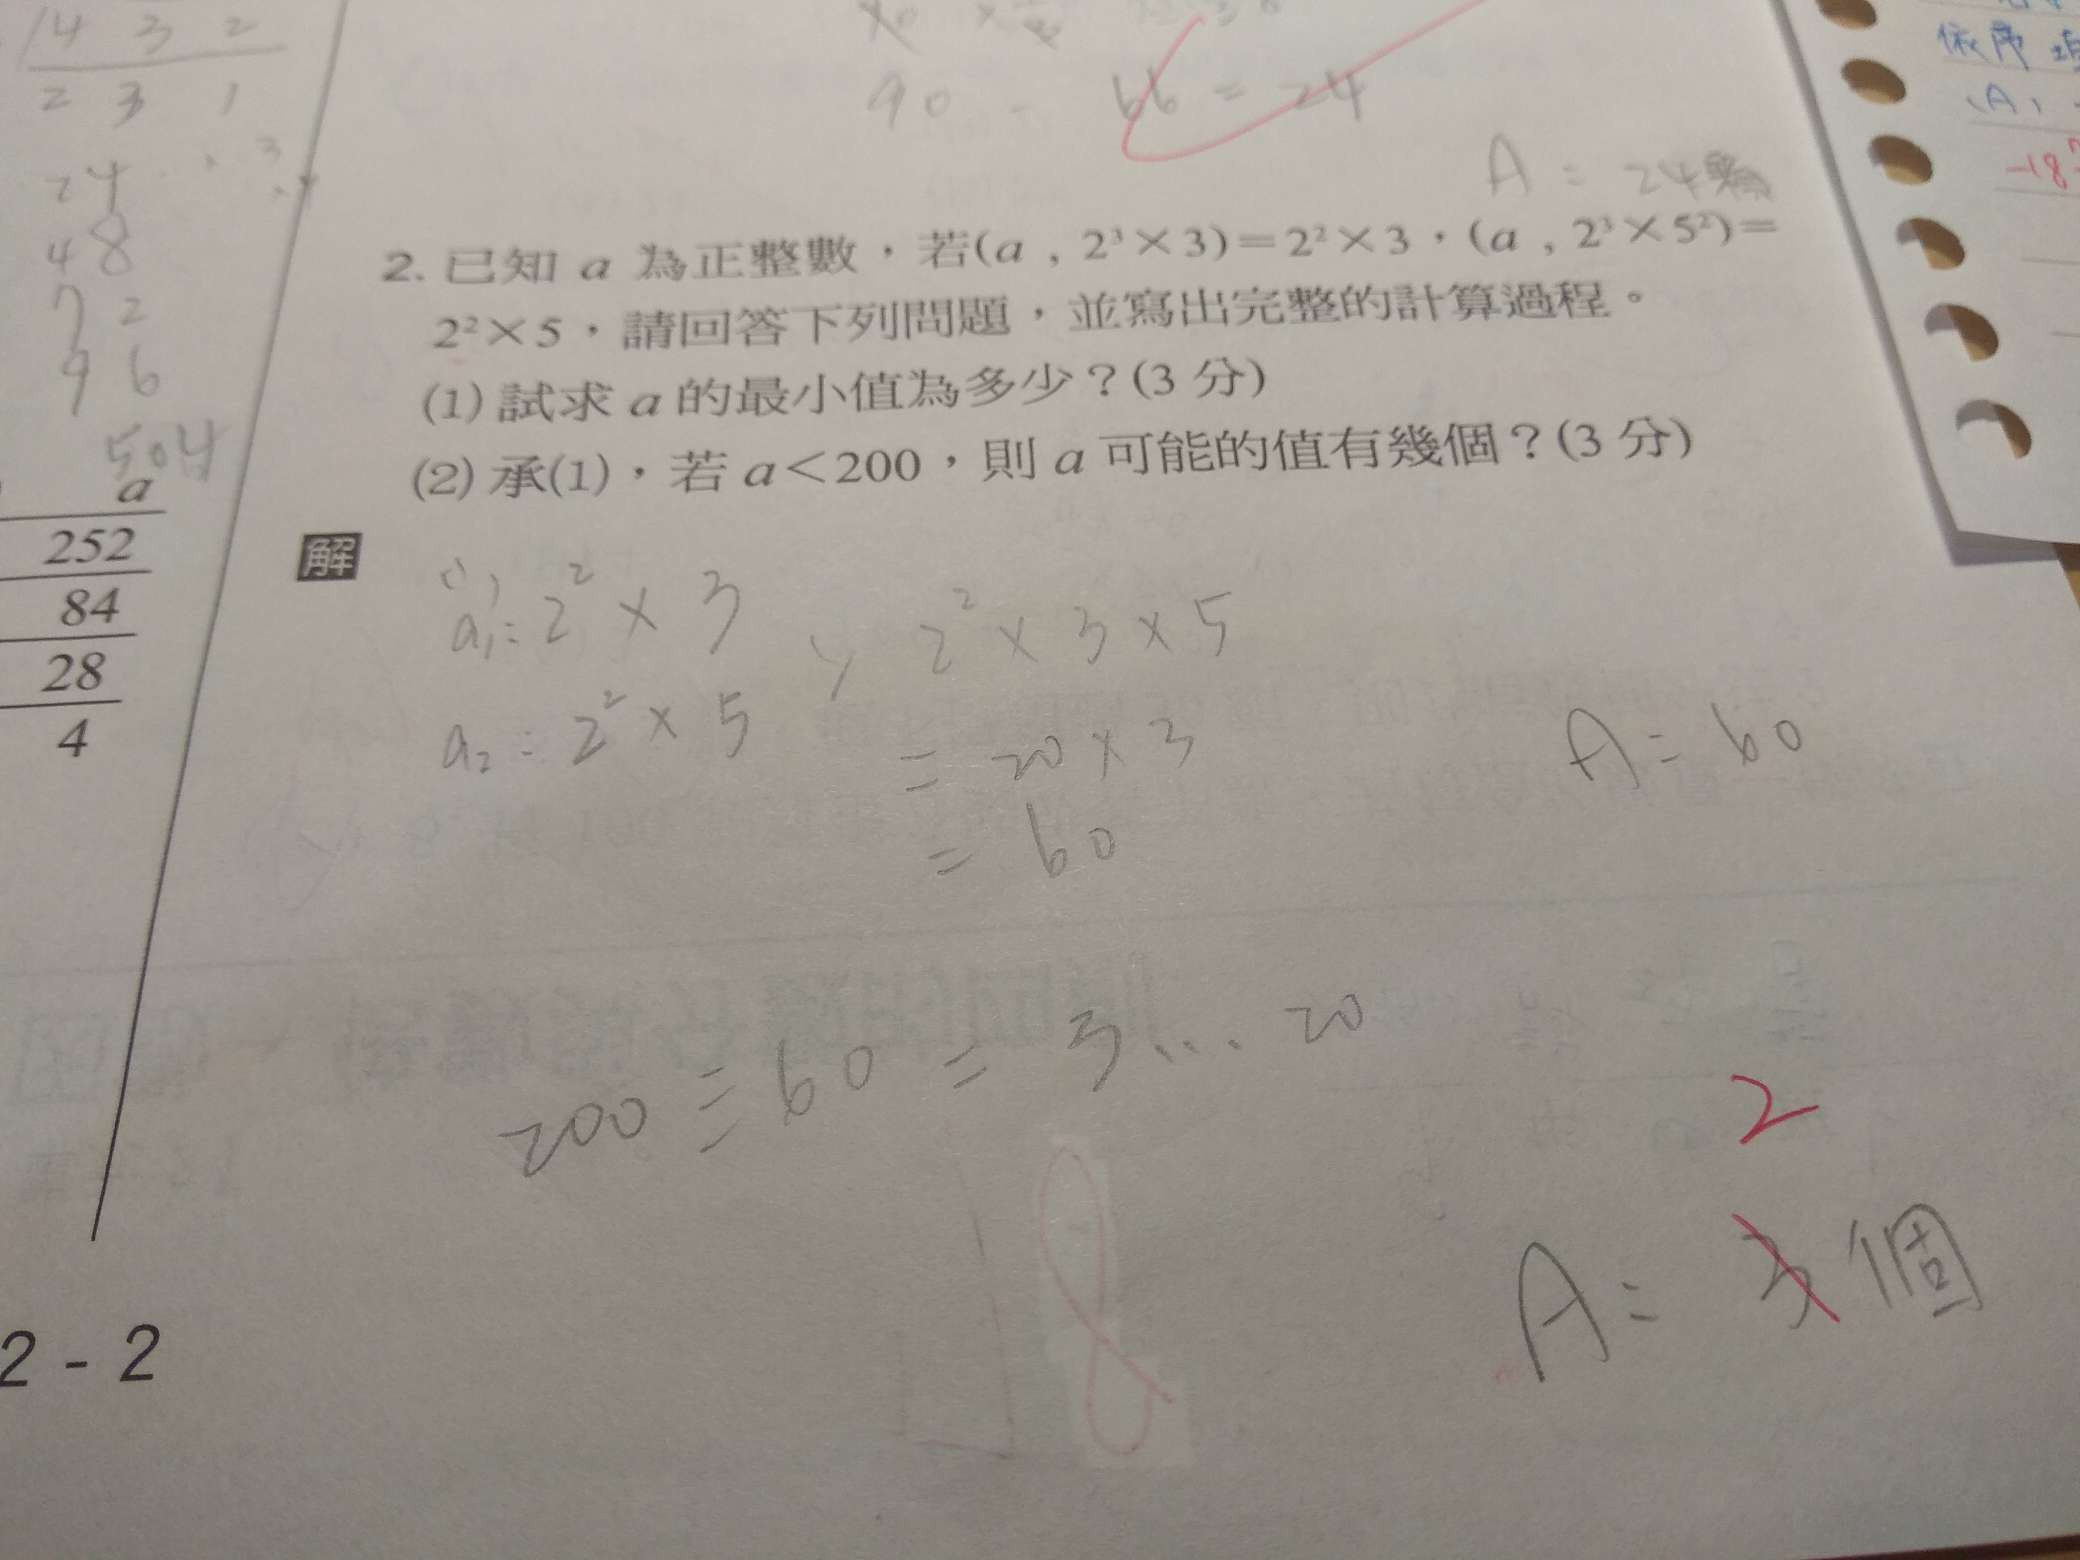 1 4 3 2
2 3 1
24
48
72
96
504
a
252
84
28
4
2 - 2
90 - 66 = 24
A = 24
2. 已知 a 為正整數，若(a , 2³×3)=2²×3，(a , 2³×5²)=
2²×5，請回答下列問題，並寫出完整的計算過程。
(1) 試求 a 的最小值為多少？(3 分)
(2) 承(1)，若 a＜200，則 a 可能的值有幾個？(3 分)
解
(1)
a₁ = 2² × 3
a₂ = 2² × 5
2² × 3 × 5
= 20 × 3
= 60
A = 60
200 ÷ 60 = 3 … 20
2
A = 3 個
依序
(A)
-18